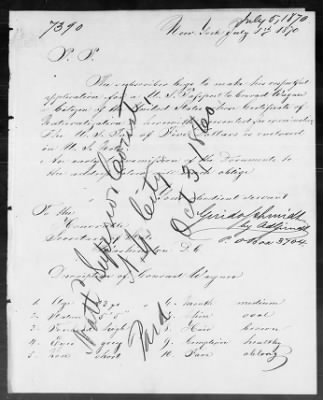 7390
July 6, 1870
New York July 5th 1870
P. P.
The subscriber begs to make his respectful
application for a U. S. Passport to Conrad Wagner
a Citizen of the United States whose Certificate of
Naturalization is herewith presented for examination
The U. S. Tax of Five Dollars is enclosed
in U. S.
An early transmission of the Documents to
the oblige
obedient servant
To the
Honorable
Secretary of
Washington D. C.
Guido Schmidt
P. O. Box 3704
Natt Superior Court
N. Y. City
Oct 3 1860
Paid
Description of Conrad Wagner
1. Age
2. Stature 5' 5"
3. Forehead high
4. Eyes grey
5. Nose short
6. Mouth medium
7. Chin oval
8. Hair brown
9. Complexion healthy
10. Face oblong